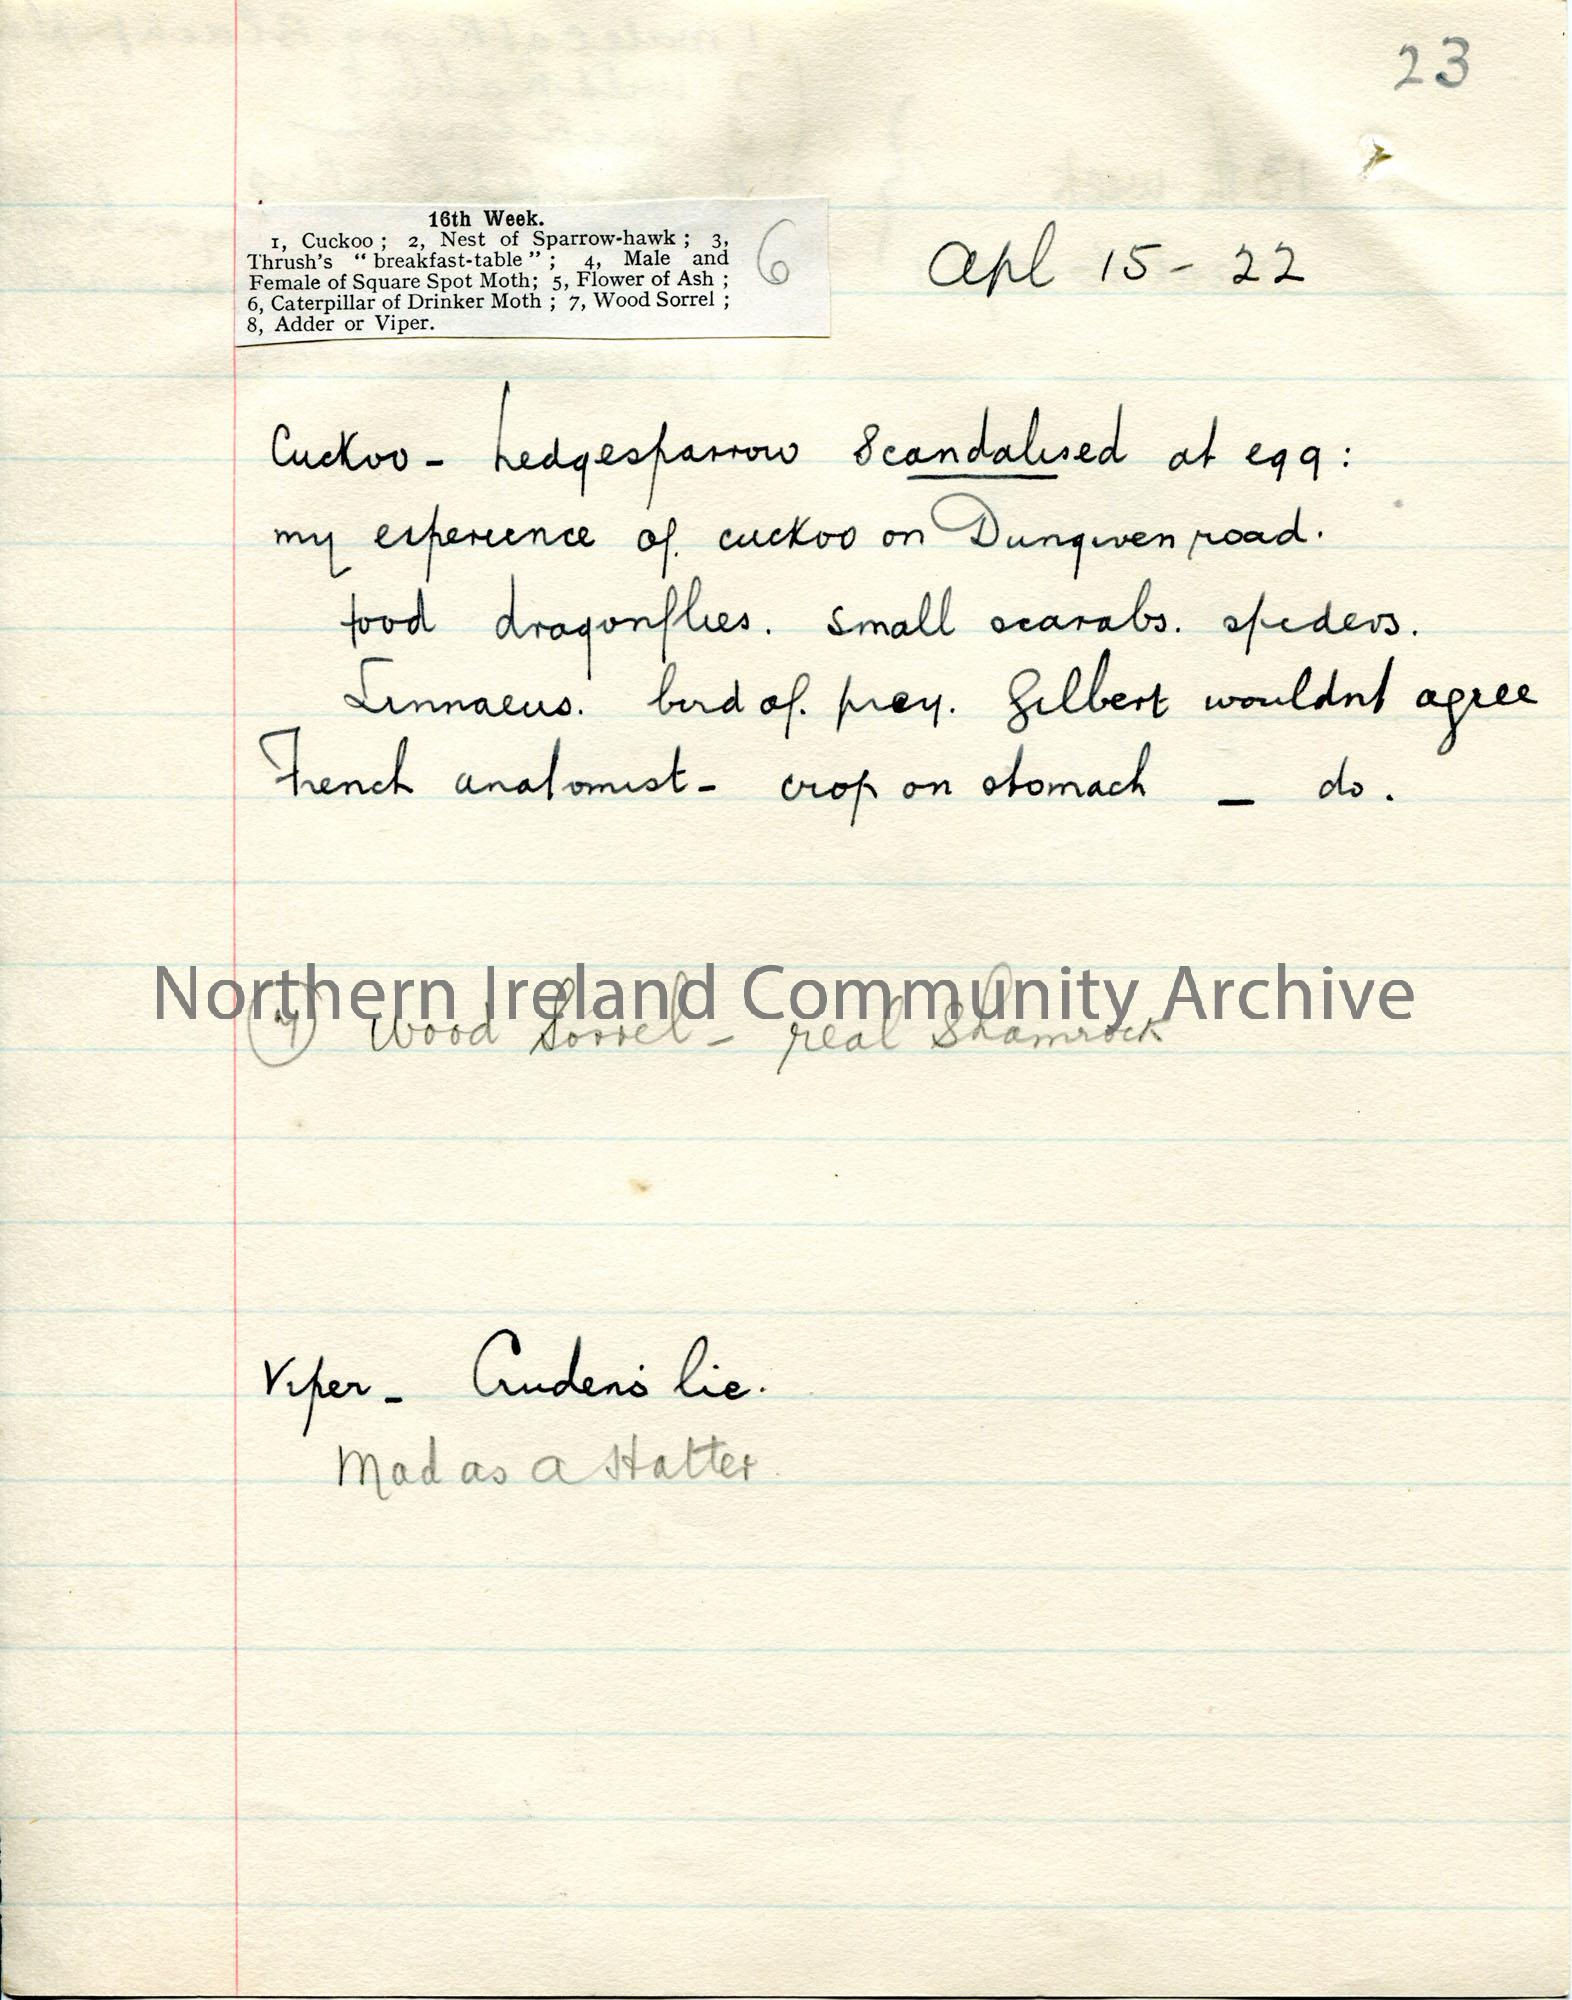 23
16th Week.
1, Cuckoo ; 2, Nest of Sparrow-hawk ; 3,
Thrush's " breakfast-table " ; 4, Male and
Female of Square Spot Moth; 5, Flower of Ash ;
6, Caterpillar of Drinker Moth ; 7, Wood Sorrel ;
8, Adder or Viper.
6
Apl 15 - 22
Cuckoo - hedgesparrow Scandalised at egg :
my experience of cuckoo on Dungiven road.
food dragonflies. small scarabs. spiders.
Linnaeus. bird of prey. Gilbert wouldnt agree
French anatomist - crop on stomach - do.
Northern Ireland Community Archive
(7) Wood Sorrel - real Shamrock
Viper - Cruden's lie.
Mad as a Hatter